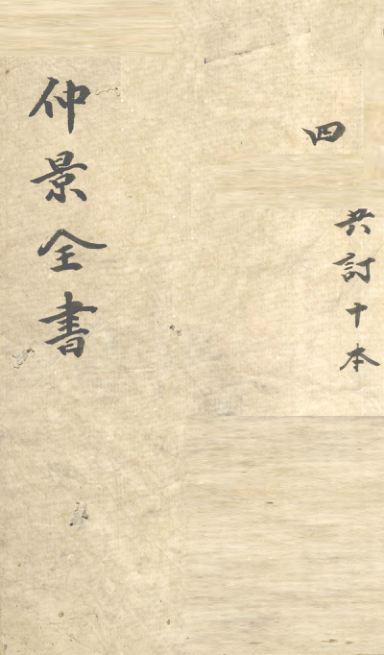 共訂十本
四
仲景全書